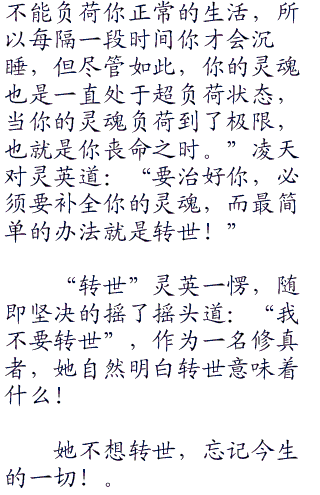 不能负荷你正常的生活，所
以每隔一段时间你才会沉
睡，但尽管如此，你的灵魂
也是一直处于超负荷状态，
当你的灵魂负荷到了极限，
也就是你丧命之时。”凌天
对灵英道：“要治好你，必
须要补全你的灵魂，而最简
单的办法就是转世！”
“转世”灵英一愣，随
即坚决的摇了摇头道：“我
不要转世”，作为一名修真
者，她自然明白转世意味着
什么！
她不想转世，忘记今生
的一切！。